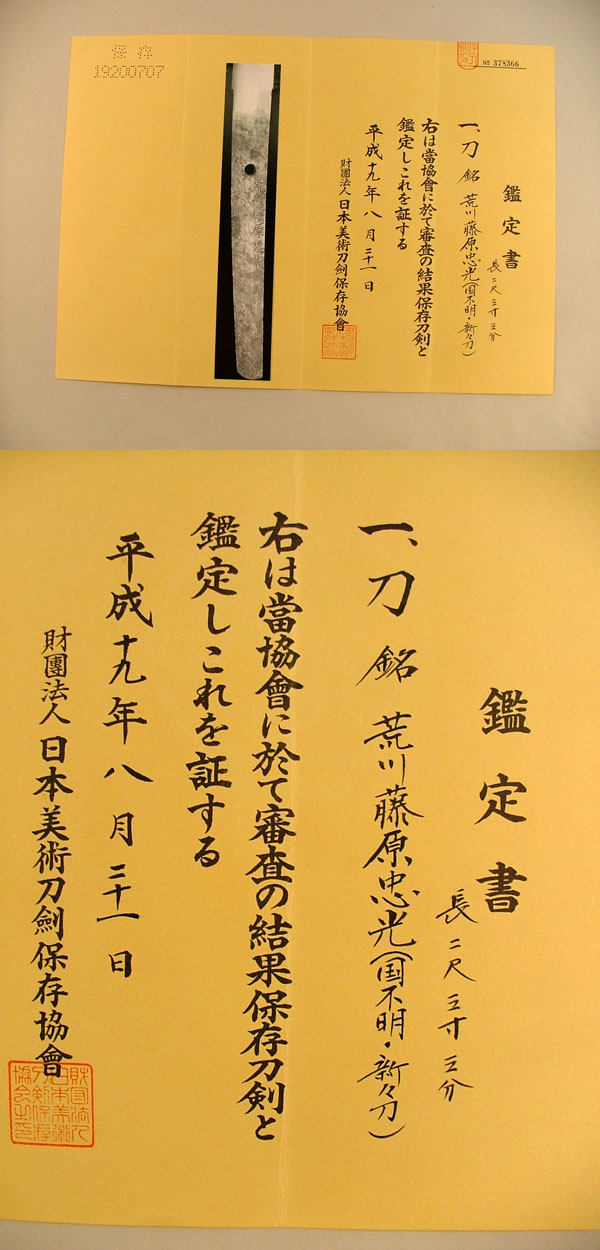 保存
19200707
№ 378366
鑑定書
一、刀 銘 荒川藤原忠光(国不明・新々刀)
長二尺三寸三分
右は當協會に於て審査の結果保存刀剣と
鑑定しこれを証する
平成十九年八月三十一日
財團法人日本美術刀劍保存協會
鑑定書
一、刀 銘 荒川藤原忠光(国不明・新々刀)
長二尺三寸三分
右は當協會に於て審査の結果保存刀剣と
鑑定しこれを証する
平成十九年八月三十一日
財團法人日本美術刀劍保存協會